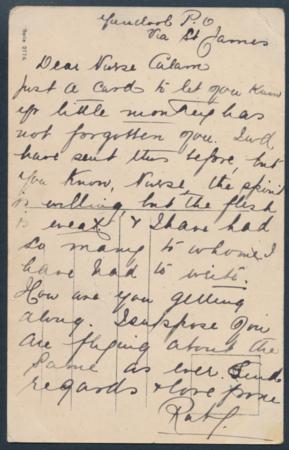 P.O
Via St James
Dear Nurse
Just a card to let you know
yr little monkey has
not forgotten you. I wd
have sent this before, but
you know, Nurse, the spirit
is willing, but the flesh
is weak. & I have had
so many to whome I
have had to write.
How are you getting
along. I suppose you
are flying about the
same as ever. Lends
regards & love from